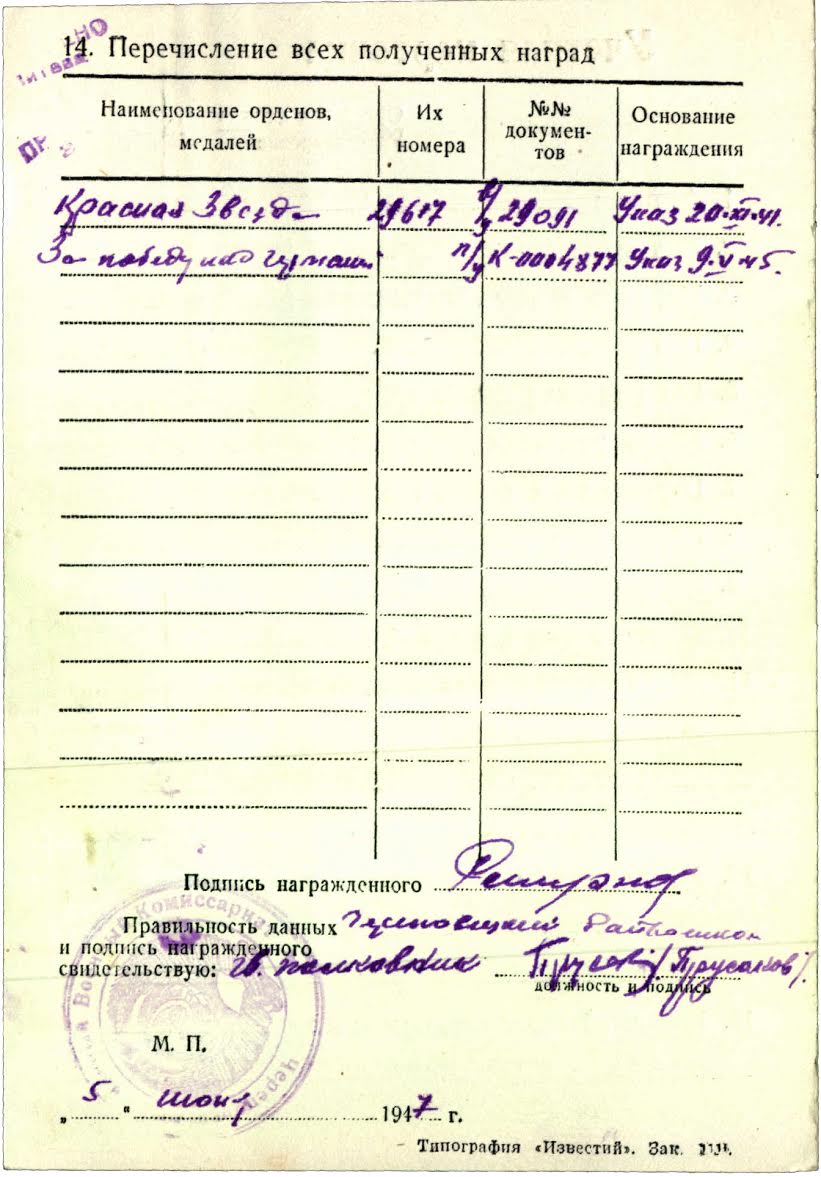 14. Перечисление всех полученных наград
Наименование орденов, медалей
Их номера
№№ докумен-тов
Основание награждения
Красная Звезда 29617 в/у 29091 Указ 20.XI.41.
За победу над Германи п/у К-0004877 Указ 9.V.45.
Подпись награжденного
Правильность данных Райвоенком
и подпись награжденного
свидетельствую: Гв. полковник /Прусаков/
должность и подпись
М. П.
„ 5 “ июня 1947 г.
Типография «Известий». Зак.
Военный Комиссариат
Череп